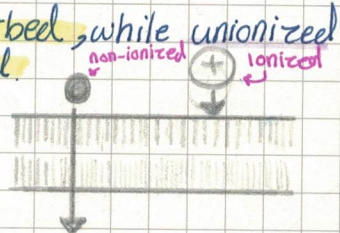 bed, while unionized
l.
non-ionized
+
ionized